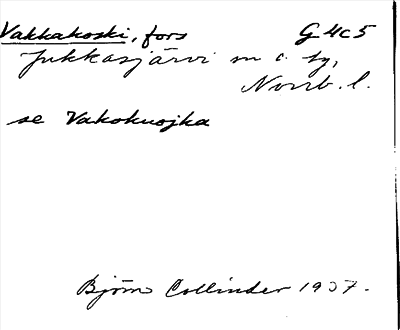 Vakkakoski, fors G 4c5
Jukkasjärvi sn o. tg,
Norrb. l.
se Vakokuojka
Björn Collinder 1937.